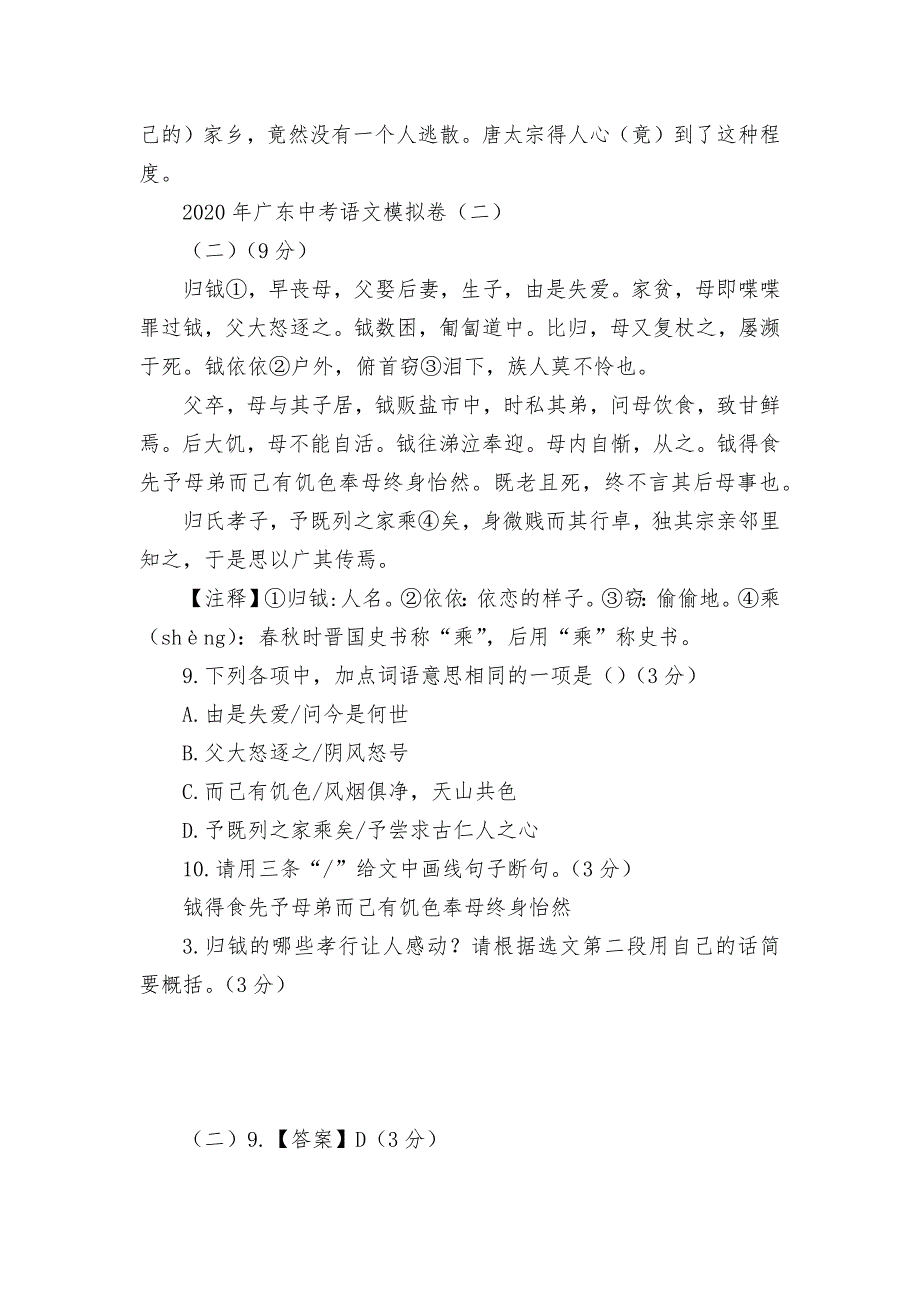 己的）家乡，竟然没有一个人逃散。唐太宗得人心（竟）到了这种程
度。
2020 年广东中考语文模拟卷（二）
（二）（9 分）
归钺①，早丧母，父娶后妻，生子，由是失爱。家贫，母即喋喋
罪过钺，父大怒逐之。钺数困，匍匐道中。比归，母又复杖之，屡濒
于死。钺依依②户外，俯首窃③泪下，族人莫不怜也。
父卒，母与其子居，钺贩盐市中，时私其弟，问母饮食，致甘鲜
焉。后大饥，母不能自活。钺往涕泣奉迎。母内自惭，从之。钺得食
先予母弟而己有饥色奉母终身怡然。既老且死，终不言其后母事也。
归氏孝子，予既列之家乘④矣，身微贱而其行卓，独其宗亲邻里
知之，于是思以广其传焉。
【注释】①归钺:人名。②依依：依恋的样子。③窃：偷偷地。④乘
（shèng）：春秋时晋国史书称“乘”，后用“乘”称史书。
9.下列各项中，加点词语意思相同的一项是（）（3 分）
A.由是失爱/问今是何世
B.父大怒逐之/阴风怒号
C.而己有饥色/风烟俱净，天山共色
D.予既列之家乘矣/予尝求古仁人之心
10.请用三条“/”给文中画线句子断句。（3 分）
钺得食先予母弟而己有饥色奉母终身怡然
3.归钺的哪些孝行让人感动？请根据选文第二段用自己的话简
要概括。（3 分）
（二）9.【答案】D（3 分）